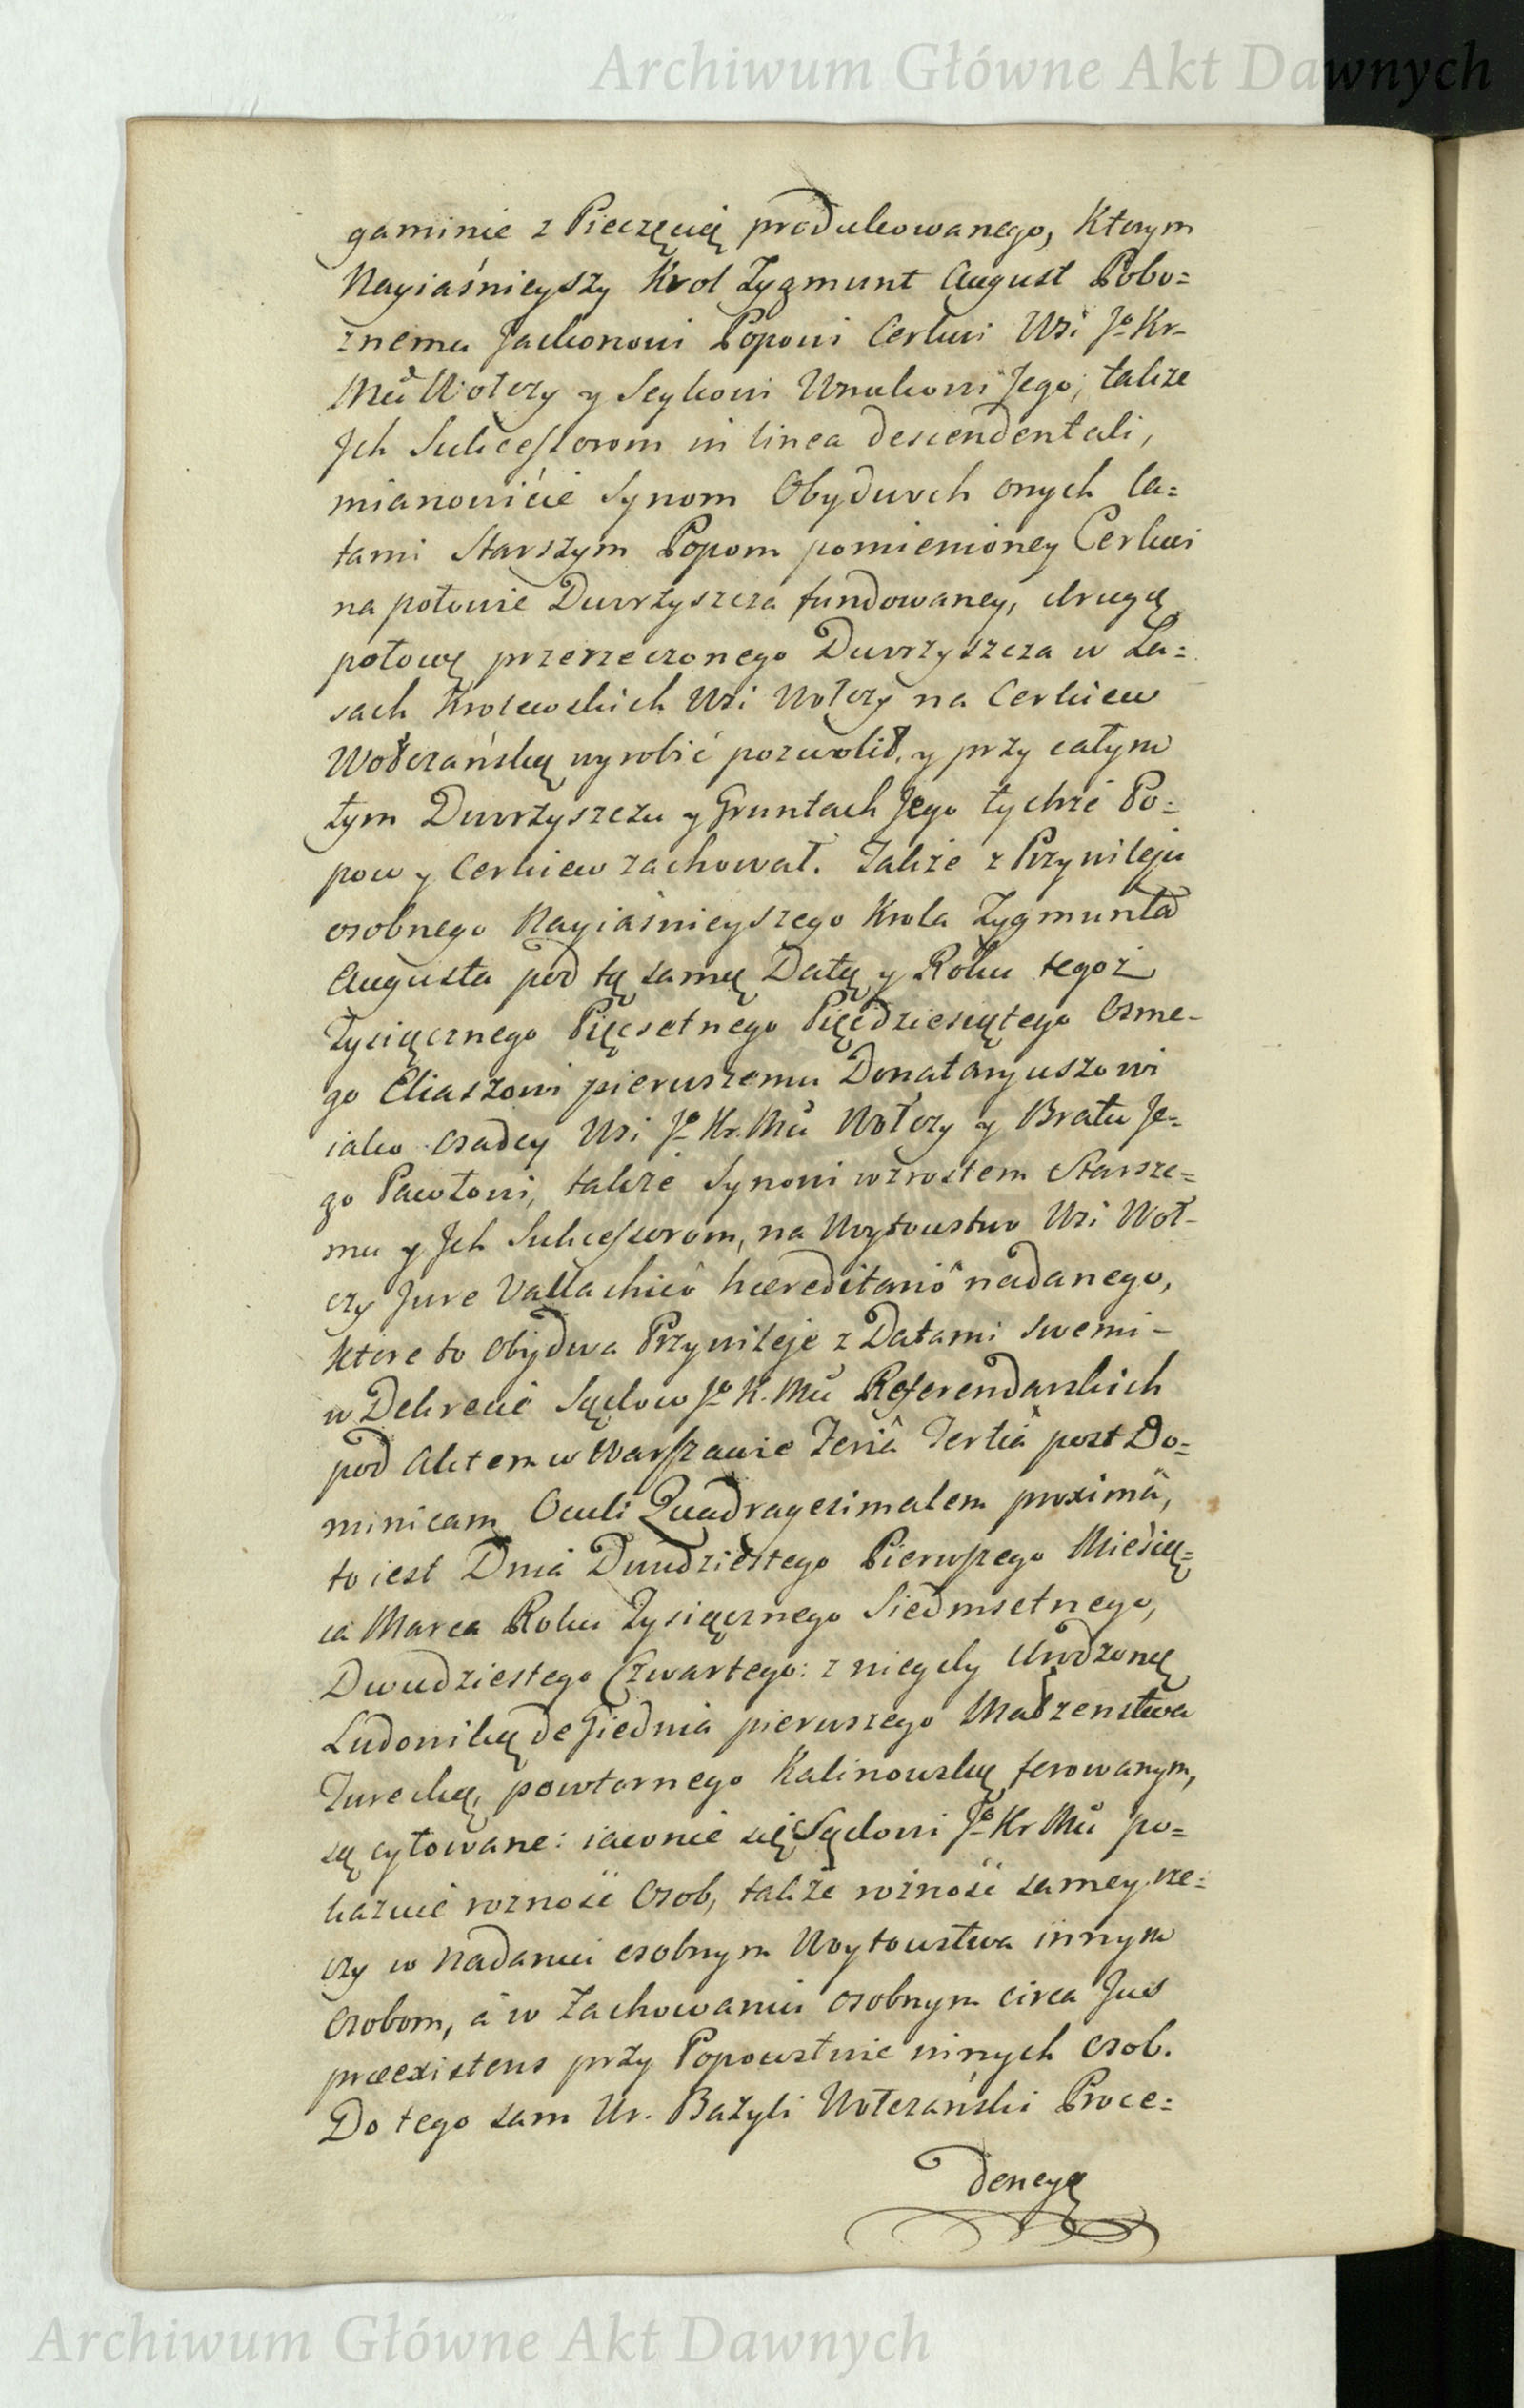 Archiwum Główne Akt Dawnych
gaminie z Pieczęcią produkowanego, Ktorym
Nayiaśnieyszy Krol Zygmunt August Pobo=
znemu Jackonowi Popowi Cerkwi Wsi Jo Kr-
Mci Wołczy y Seykowi Wnukowi Jego, takze
Jch Sukcessorom in linea descendentali,
mianowicie Synom Obydwoch onych la=
tami Starszym Popom pomienioney Cerkwi
na połowie Dworzyszcza fundowaney, drugą
połowę przerzeczonego Dworzyszcza w La=
sach Krolewskich Wsi Wołczy na Cerkiew
Wołczańską wyrobić pozwolił, y przy całym
tym Dworzyszczu y Gruntach Jego tychże Po=
pow y Cerkiew zachował. Także z Przywileju
osobnego Nayiaśnieyszego Krola Zygmunta
Augusta pod tą samą Datą y Roku tegoż
Tysiącznego Pięcsetnego Pięćdziesiątego Osme-
go Eliaszowi pierwszemu Donataryuszowi
iako Osadcy Wsi Jo Kr. Mci Wołczy y Bratu Je=
go Pawłowi, także Synowi wzrostem Starsze=
mu y Jch Sukcessorom, na Woytowstwo Wsi Woł-
czy Jure Vallachico hæreditario nadanego,
które to obydwa Przywileje z Datami swemi-
w Dekrecie Sądow Jo K. Mci Referendarskich
pod Aktem w Warszawie Feriâ Tertiâ post Do=
minicam Oculi Quadragesimalem proximâ,
to iest Dnia Dwudziestego Pierwszego Miesią=
ca Marca Roku Tysiącznego Siedmsetnego,
Dwudziestego Czwartego: z niegdy Urodzoną
Ludowiką de Giednia pierwszego Małzenstwa
Turecką, powtornego Kalinowską ferowanym,
są cytowane: iawnie się Sądowi Jo Kr Mci po=
kazuie rozność Osob, także rożność samey rze=
czy w Nadaniu osobnym Woytowstwa innym
Osobom, á w Zachowaniu osobnym circa Jus
præexistens przy Popowstwie innych Osob.
Do tego sam Ur. Bazyli Wołczański Proce=
dencyą
Archiwum Główne Akt Dawnych